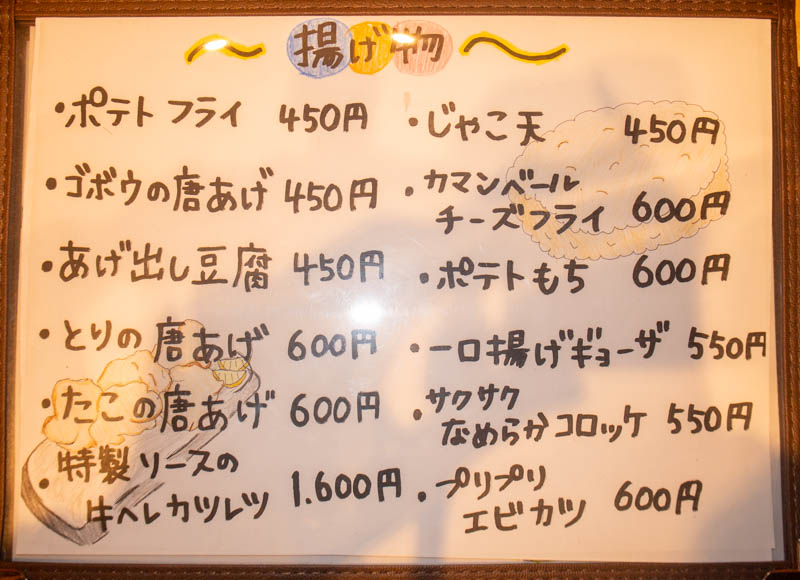 ~揚げ物~
・ポテトフライ 450円
・ゴボウの唐あげ 450円
・あげ出し豆腐 450円
・とりの唐あげ 600円
・たこの唐あげ 600円
・特製ソースの
牛ヘレカツレツ 1.600円
・じゃこ天 450円
・カマンベール
チーズフライ 600円
・ポテトもち 600円
・一口揚げギョーザ 550円
・サクサク
なめらかコロッケ 550円
・プリプリ
エビカツ 600円